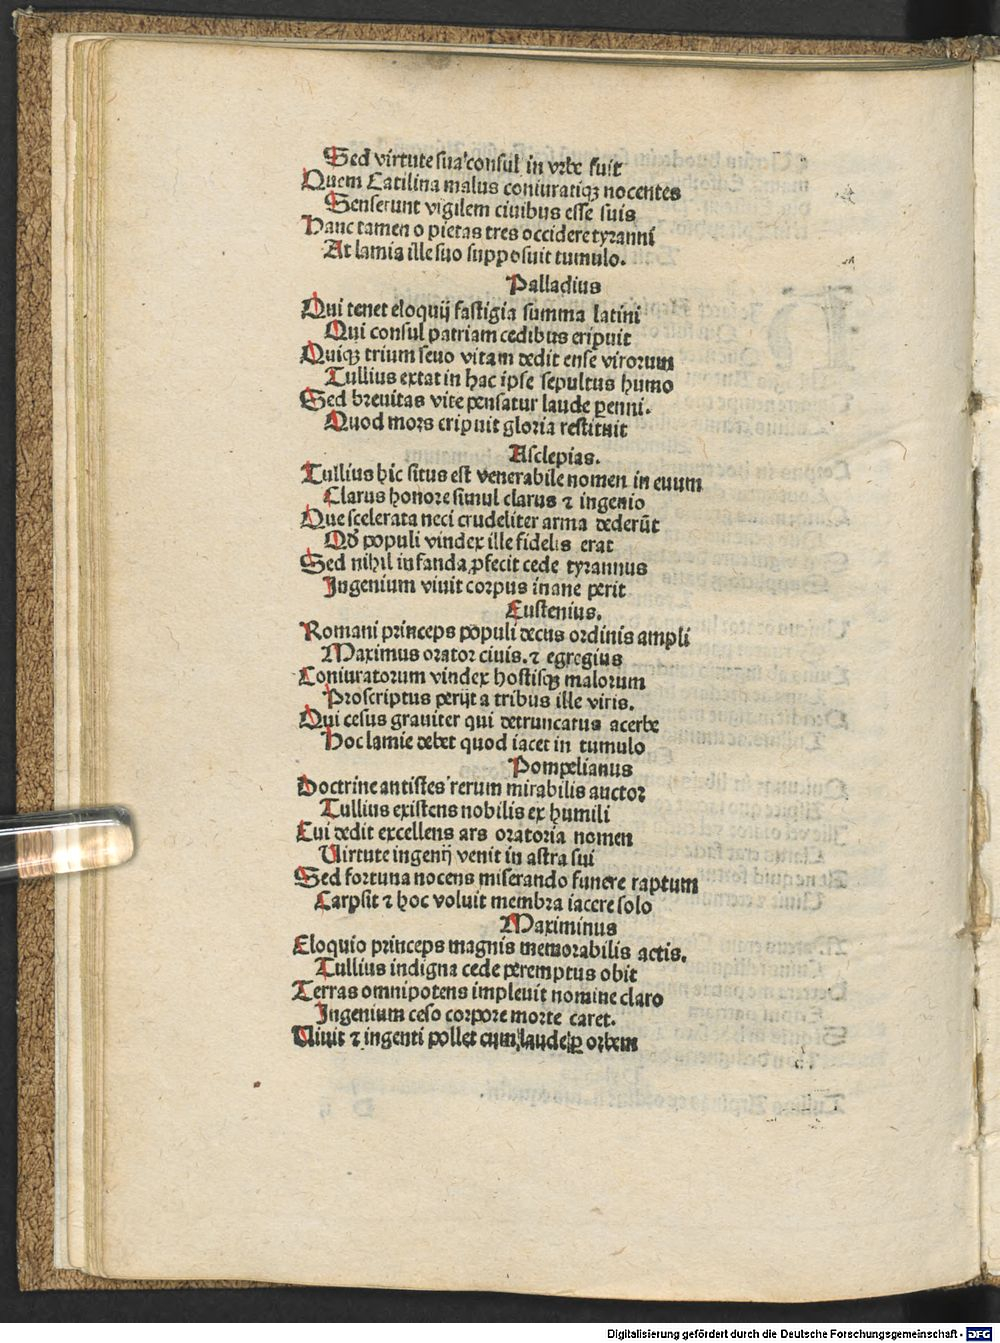 Sed virtute sua consul in vrbe fuit
Quem Catilina malus coniuratiqꝫ nocentes
Senserunt vigilem ciuibus esse suis
Hanc tamen o pietas tres occidere tyranni
At lamia ille suo supposuit tumulo.
Palladius
Qui tenet eloquij fastigia summa latini
Qui consul patriam cedibus eripuit
Quiqꝫ trium seuo vitam dedit ense virorum
Tullius extat in hac ipse sepultus humo
Sed breuitas vite pensatur laude ꝑenni.
Quod mors eripuit gloria restituit
Asclepias.
Tullius hic situs est venerabile nomen in euum
Clarus honore simul clarus ⁊ ingenio
Que scelerata neci crudeliter arma dederūt
Qđ populi vindex ille fidelis erat
Sed nihil infanda ꝓfecit cede tyrannus
Ingenium viuit corpus inane perit
Eustenius.
Romani princeps populi decus ordinis ampli
Maximus orator ciuis. ⁊ egregius
Coniuratorum vindex hostisqꝫ malorum
Proscriptus perijt a tribus ille viris.
Qui cesus grauiter qui detruncatus acerbe
Hoc lamie debet quod iacet in tumulo
Pompelianus
Doctrine antistes rerum mirabilis auctor
Tullius existens nobilis ex humili
Cui dedit excellens ars oratoria nomen
Uirtute ingenij venit in astra sui
Sed fortuna nocens miserando funere raptum
Carpsit ⁊ hoc voluit membra iacere solo
Maximinus
Eloquio princeps magnis memorabilis actis.
Tullius indigna cede peremptus obit
Terras omnipotens impleuit nomine claro
Ingenium ceso corpore morte caret.
Uiuit ⁊ ingenti pollet cum laude ꝑ orbem
Digitalisierung gefördert durch die Deutsche Forschungsgemeinschaft - DFG